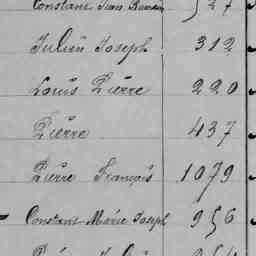 Constant Jean 527
Julien Joseph 312
Louis Pierre 220
Pierre 437
Pierre François 1079
Constant Marie Joseph 956